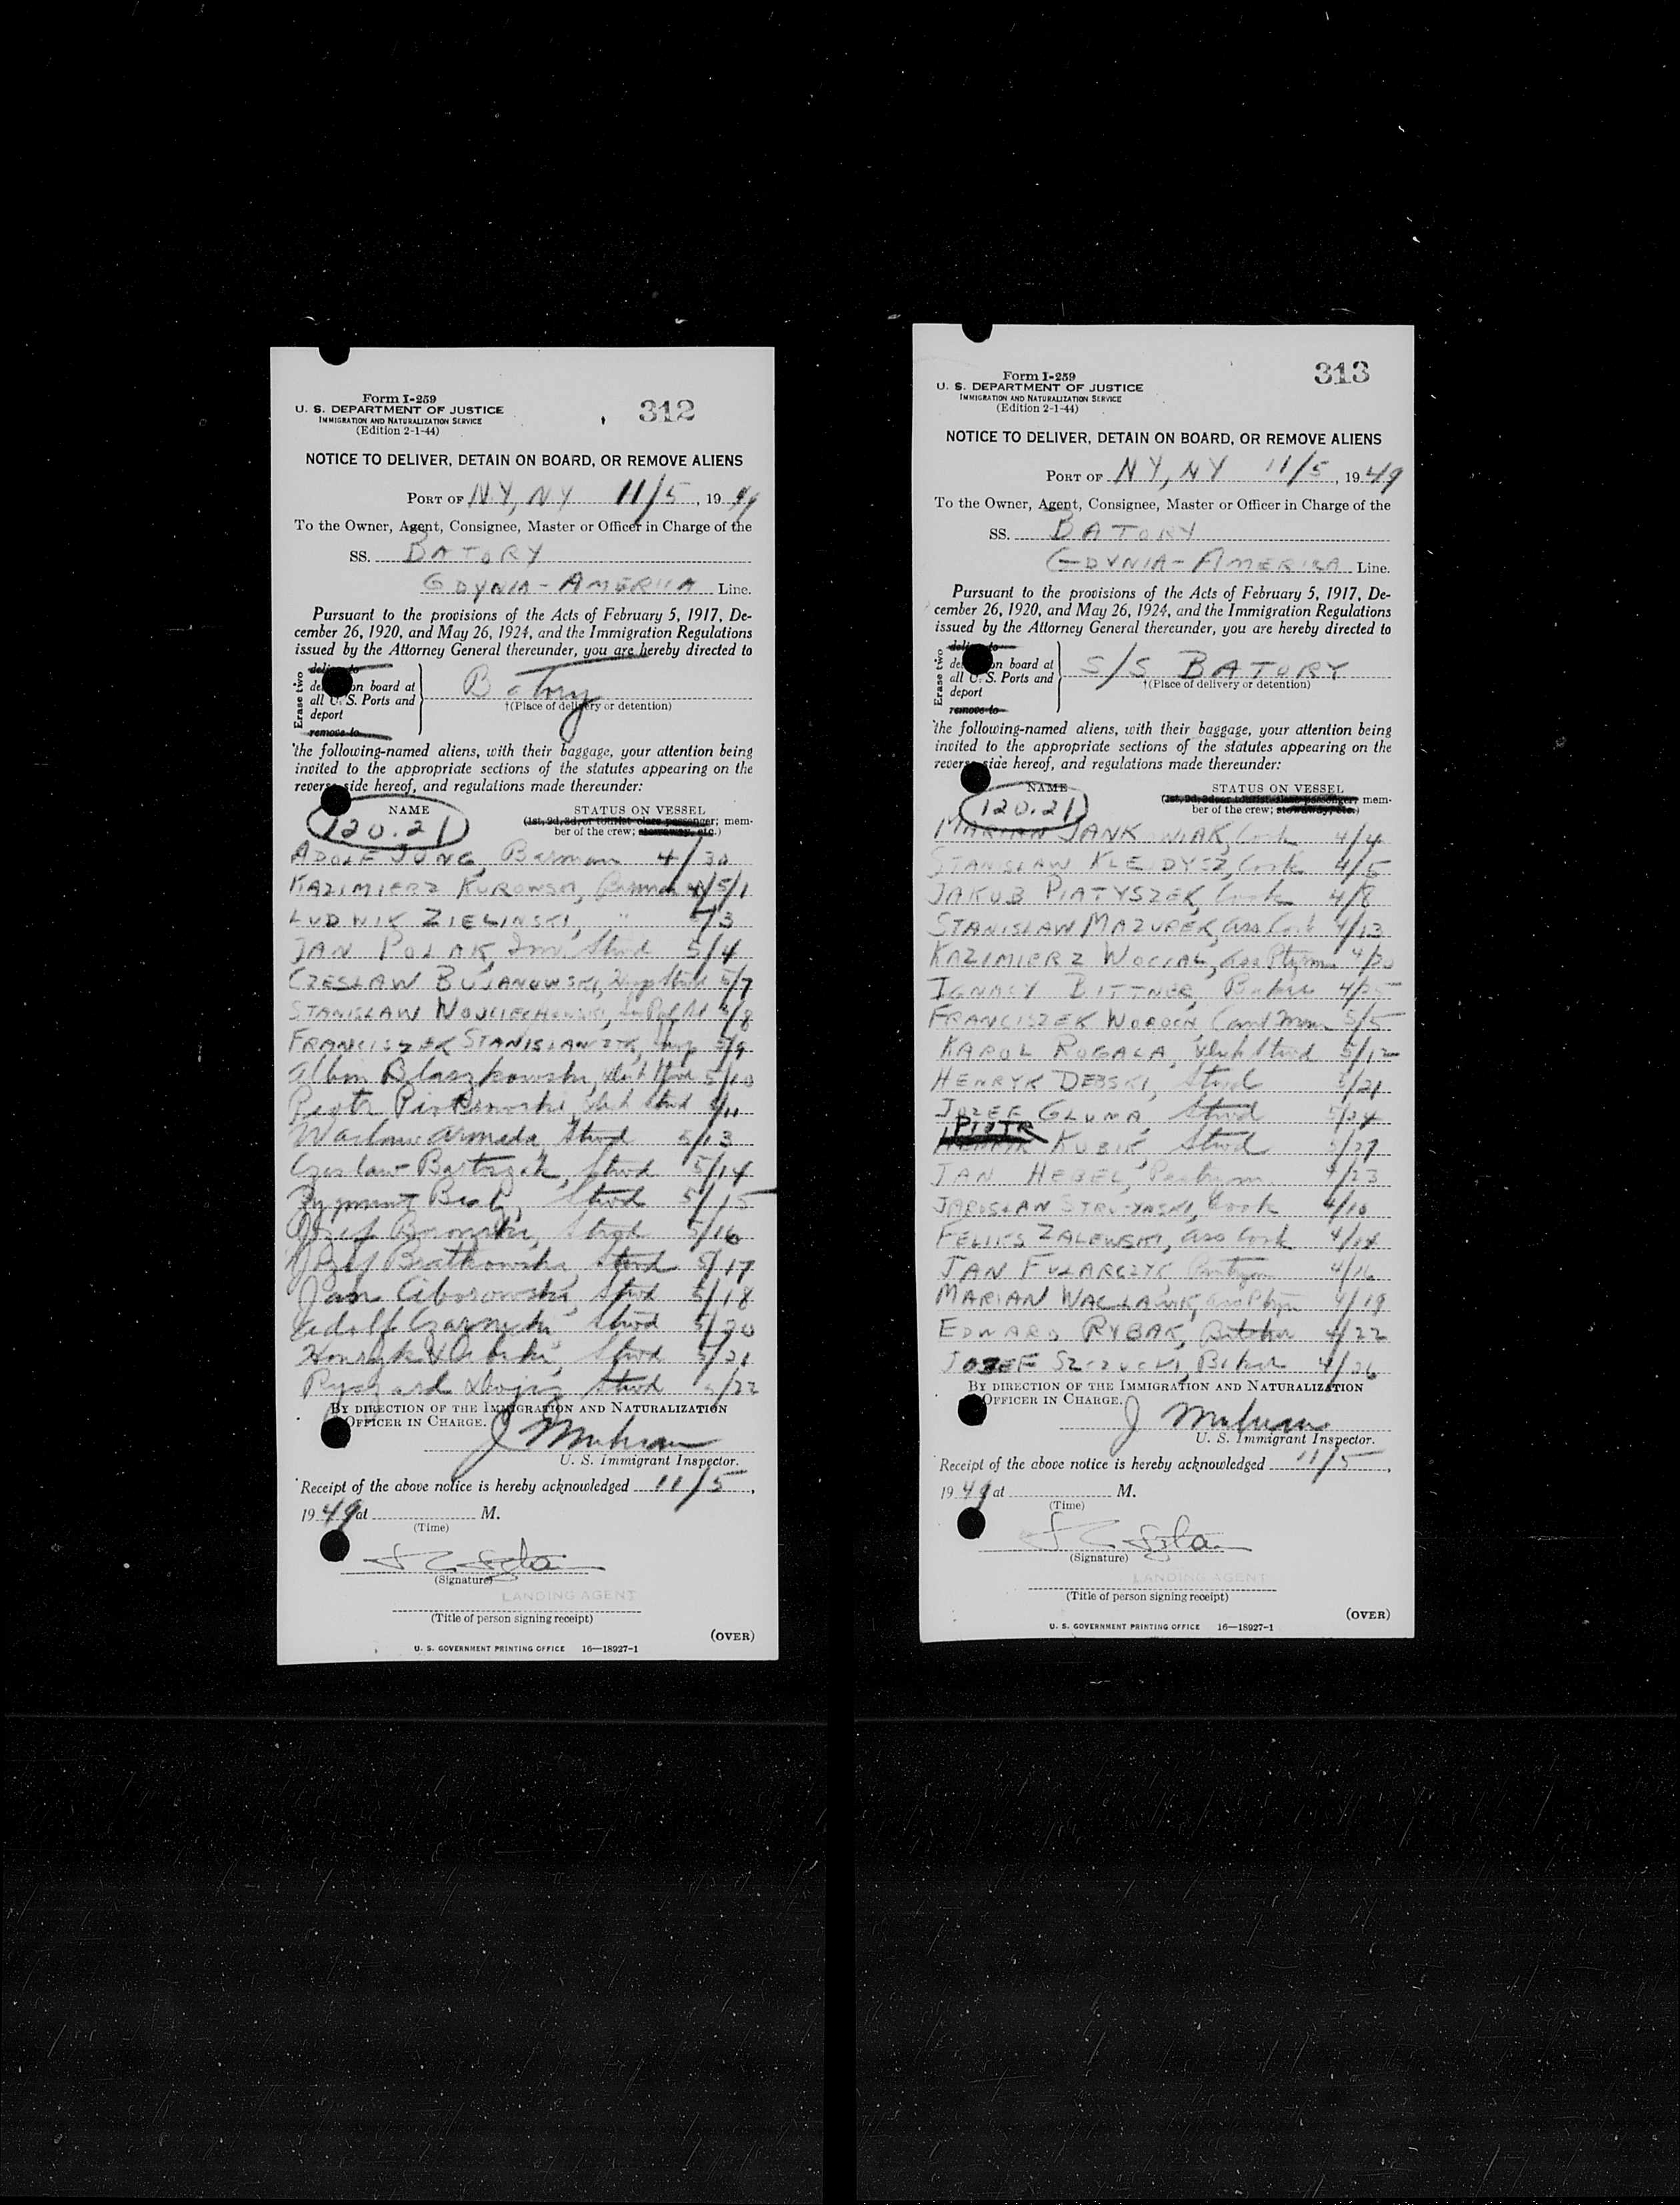 Form I-259
U. S. DEPARTMENT OF JUSTICE
IMMIGRATION AND NATURALIZATION SERVICE
(Edition 2-1-44)
312
NOTICE TO DELIVER, DETAIN ON BOARD, OR REMOVE ALIENS
PORT OF NY, NY 11/5, 1949
To the Owner, Agent, Consignee, Master or Officer in Charge of the
SS. BATORY
GDYNIA-AMERICA Line.
Pursuant to the provisions of the Acts of February 5, 1917, De-
cember 26, 1920, and May 26, 1924, and the Immigration Regulations
issued by the Attorney General thereunder, you are hereby directed to
Erase two
deliver to
on board at
all U. S. Ports and
deport
remove to
Batory
†(Place of delivery or detention)
the following-named aliens, with their baggage, your attention being
invited to the appropriate sections of the statutes appearing on the
reverse side hereof, and regulations made thereunder:
NAME
STATUS ON VESSEL
(1st, 2d, 3d, or tourist-class passenger; mem-
ber of the crew; stowaway, etc.)
120.21
ADOLF JUNG, Barman 4/30
KAZIMIERZ KUROWSKI, Barman 5/1
LUDWIK ZIELINSKI, " 5/3
JAN POLAK, Stwd 5/4
CZESLAW BUJANOWSKI, 5/7
STANISLAW 5/8
FRANCISZEK 5/9
Albin Blaszkowski, 5/10
Piotr Piotrowski, Stwd 5/11
Waclaw Armada, Stwd 5/13
Czeslaw Bartosik, Stwd 5/14
Zygmunt Stwd 5/15
Jozef Stwd 5/16
Jozef Bratkowski, Stwd 5/17
Jan Ciborowski, Stwd 5/18
Adolf Czarnecki, Stwd 5/20
Henryk Stwd 5/21
Ryszard Stwd 5/22
BY DIRECTION OF THE IMMIGRATION AND NATURALIZATION
OFFICER IN CHARGE.
J
U. S. Immigrant Inspector.
Receipt of the above notice is hereby acknowledged 11/5,
1949 at M.
(Time)
(Signature)
LANDING AGENT
(Title of person signing receipt)
(OVER)
U. S. GOVERNMENT PRINTING OFFICE 16—18927-1
Form I-259
U. S. DEPARTMENT OF JUSTICE
IMMIGRATION AND NATURALIZATION SERVICE
(Edition 2-1-44)
313
NOTICE TO DELIVER, DETAIN ON BOARD, OR REMOVE ALIENS
PORT OF NY, NY 11/5, 1949
To the Owner, Agent, Consignee, Master or Officer in Charge of the
SS. BATORY
GDYNIA-AMERICA Line.
Pursuant to the provisions of the Acts of February 5, 1917, De-
cember 26, 1920, and May 26, 1924, and the Immigration Regulations
issued by the Attorney General thereunder, you are hereby directed to
Erase two
deliver to
on board at
all U. S. Ports and
deport
remove to
S/S BATORY
†(Place of delivery or detention)
the following-named aliens, with their baggage, your attention being
invited to the appropriate sections of the statutes appearing on the
reverse side hereof, and regulations made thereunder:
NAME
STATUS ON VESSEL
(1st, 2d, 3d, or tourist-class passenger; mem-
ber of the crew; stowaway, etc.)
120.21
MARIAN JANKOWIAK, Cook 4/4
STANISLAW KLEJDYSZ, Cook 4/5
JAKUB PIATYSZEK, Cook 4/8
STANISLAW MAZUREK, ass Cook 4/13
KAZIMIERZ WOCIAL, 4/20
IGNACY BITTNER, Baker 4/25
FRANCISZEK 5/5
KAROL ROGALA, Stwd 5/12
HENRYK DEBSKI, Stwd 5/21
JOZEF GLUNA, Stwd 5/24
PIOTR KUBIK, Stwd 5/27
JAN HEBEL, 4/23
JAROSLAN Cook 4/10
FELIKS ZALEWSKI, ass Cook 4/14
JAN FULARCZYK, 4/16
MARIAN 4/19
EDWARD RYBAK, 4/22
JOZEF Baker 4/26
BY DIRECTION OF THE IMMIGRATION AND NATURALIZATION
OFFICER IN CHARGE.
J
U. S. Immigrant Inspector.
Receipt of the above notice is hereby acknowledged 11/5,
1949 at M.
(Time)
(Signature)
LANDING AGENT
(Title of person signing receipt)
(OVER)
U. S. GOVERNMENT PRINTING OFFICE 16—18927-1